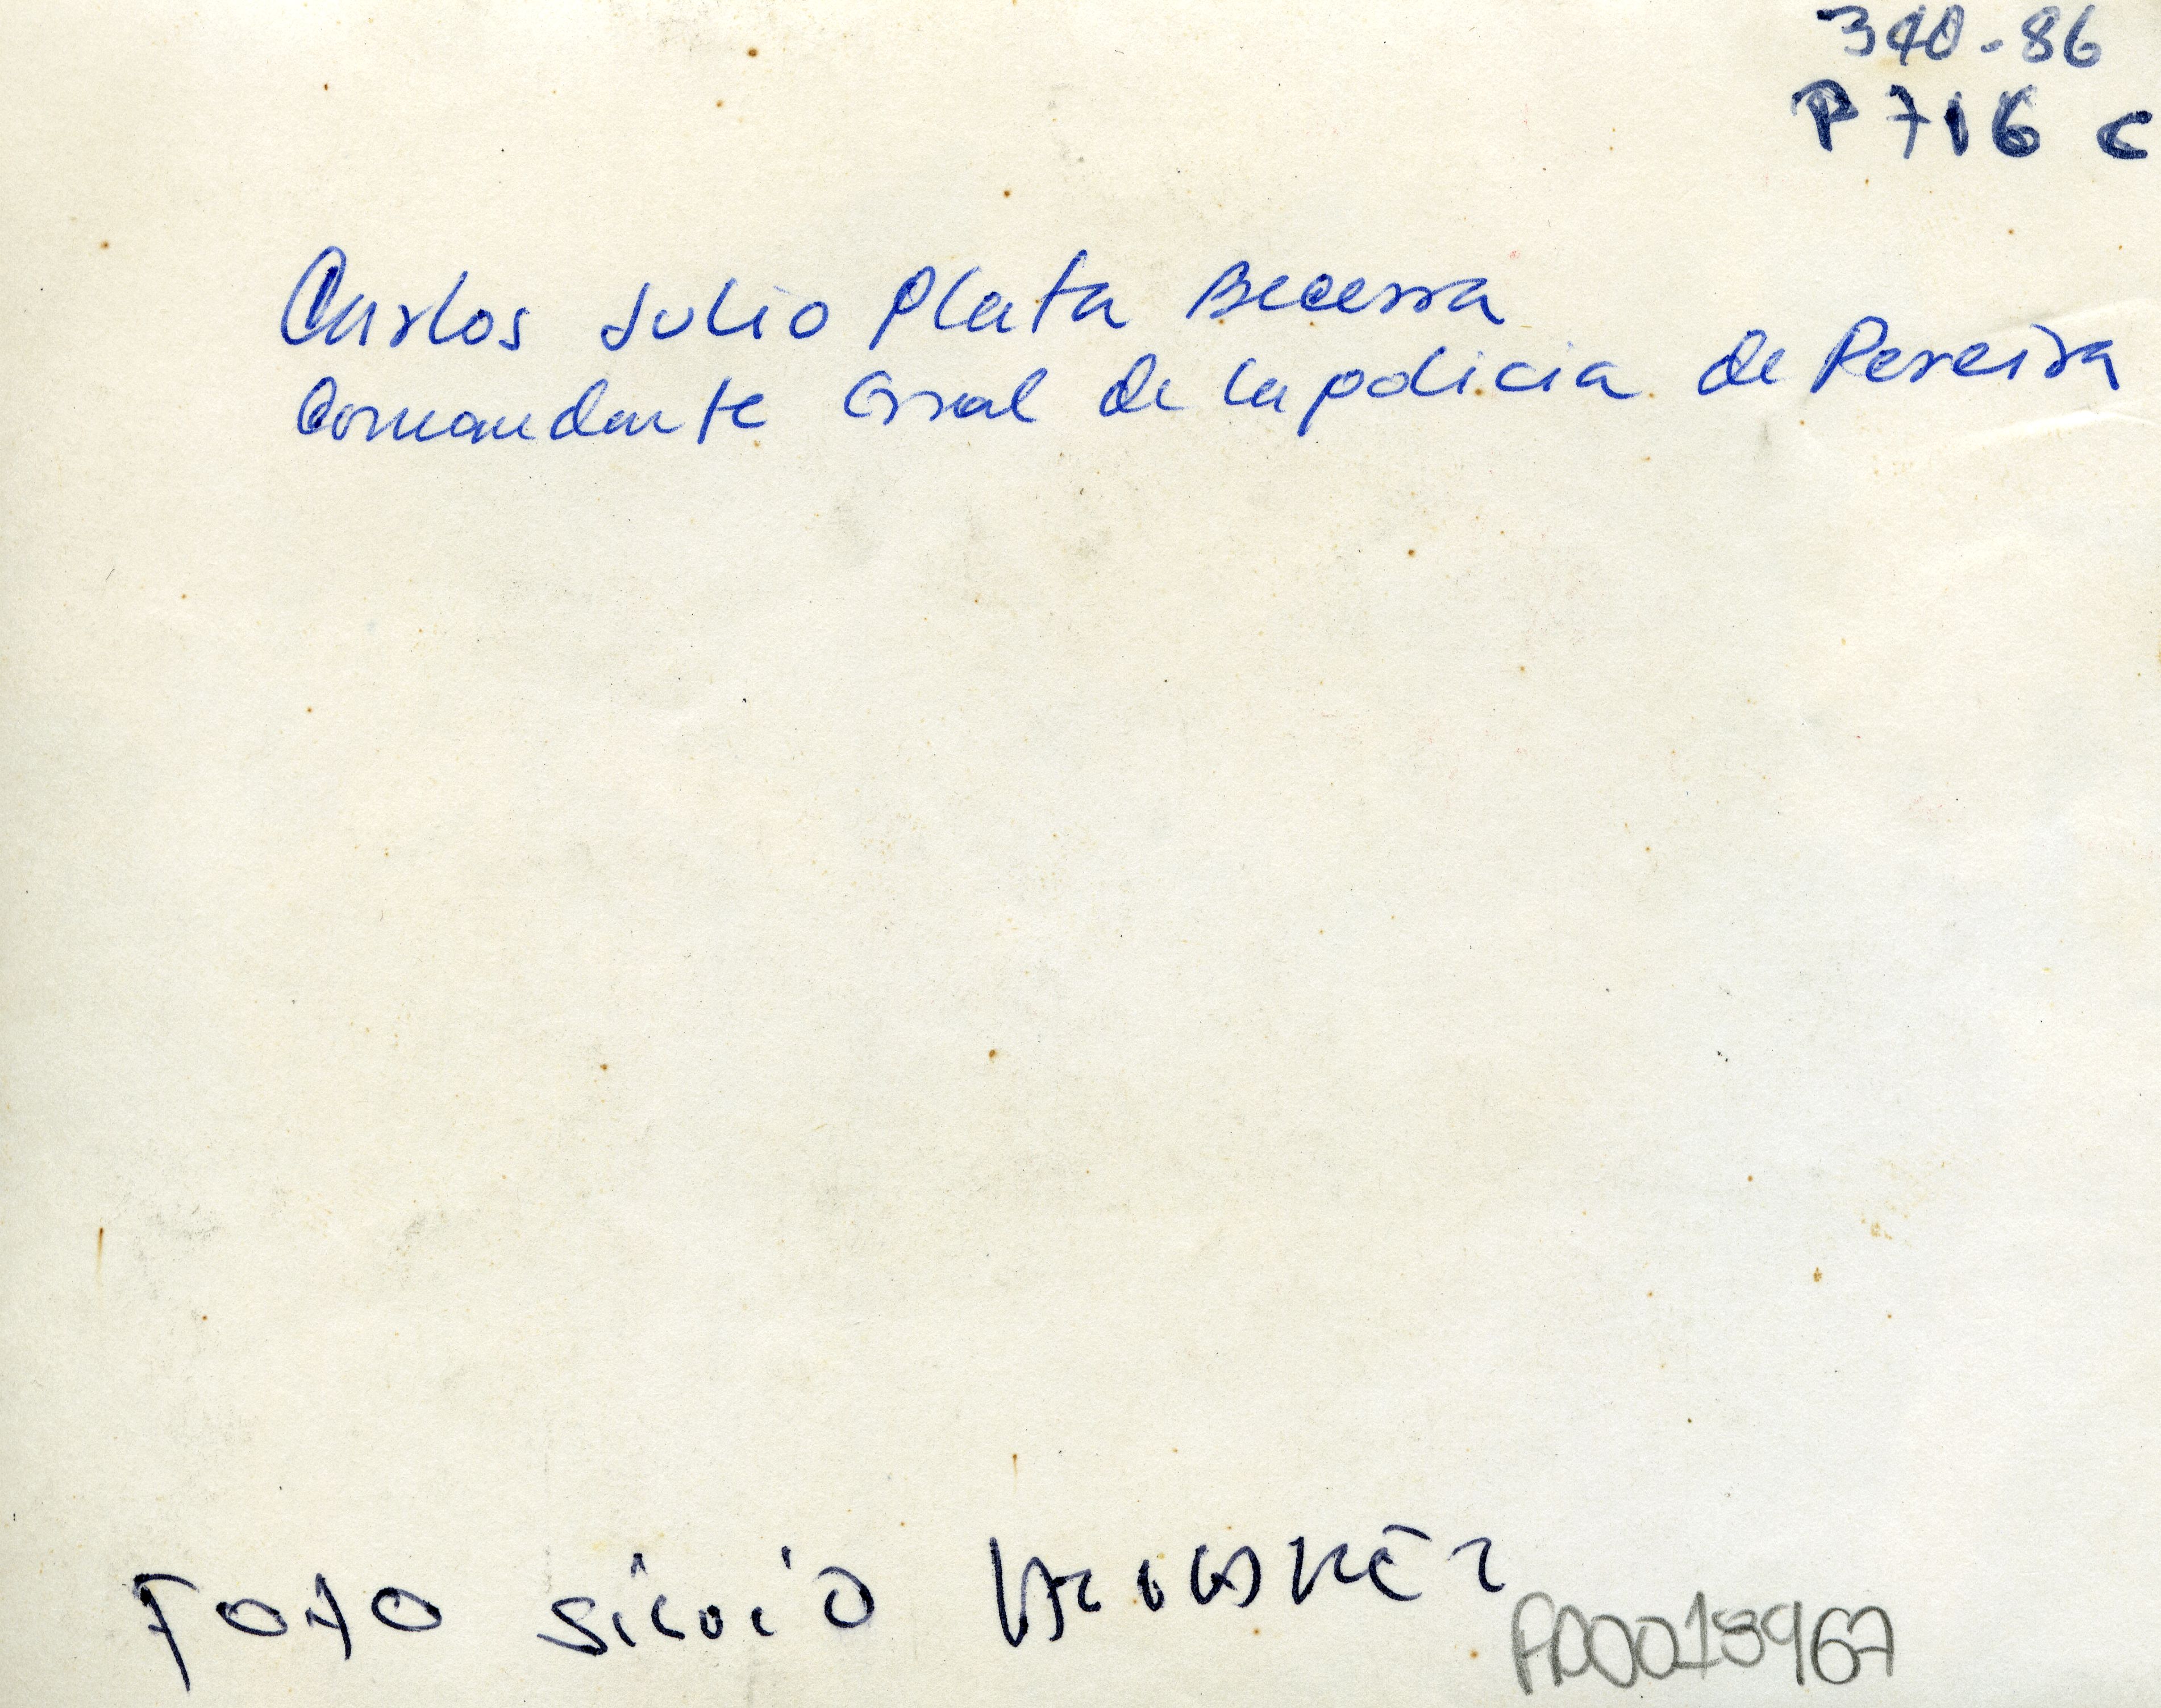 340-86
P716c
Carlos Julio Plata Becerra
Comandante Gral de la policia de Pereira
Foto Silvio